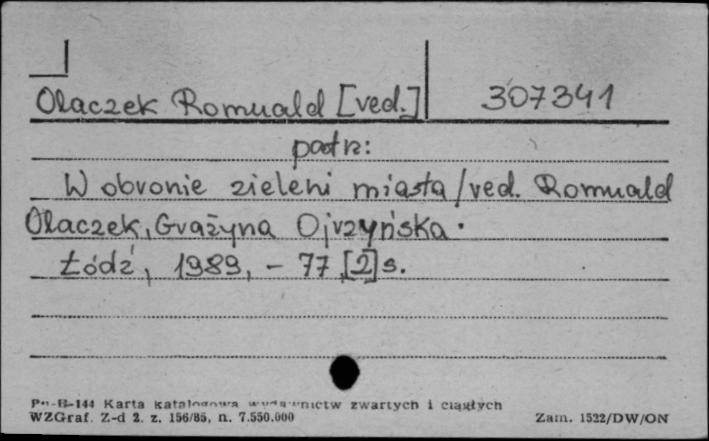 Olaczek Romuald [red.] 307341
patrz:
W obronie zieleni miasta / red. Romuald
Olaczek, Grażyna Ojrzyńska.
Łódź, 1989, - 77 [2] s.
Pu-B-144 Karta katalogowa wydawnictw zwartych i ciągłych
WZGraf. Z-d 2. z. 156/85, n. 7.550.000 Zam. 1522/DW/ON